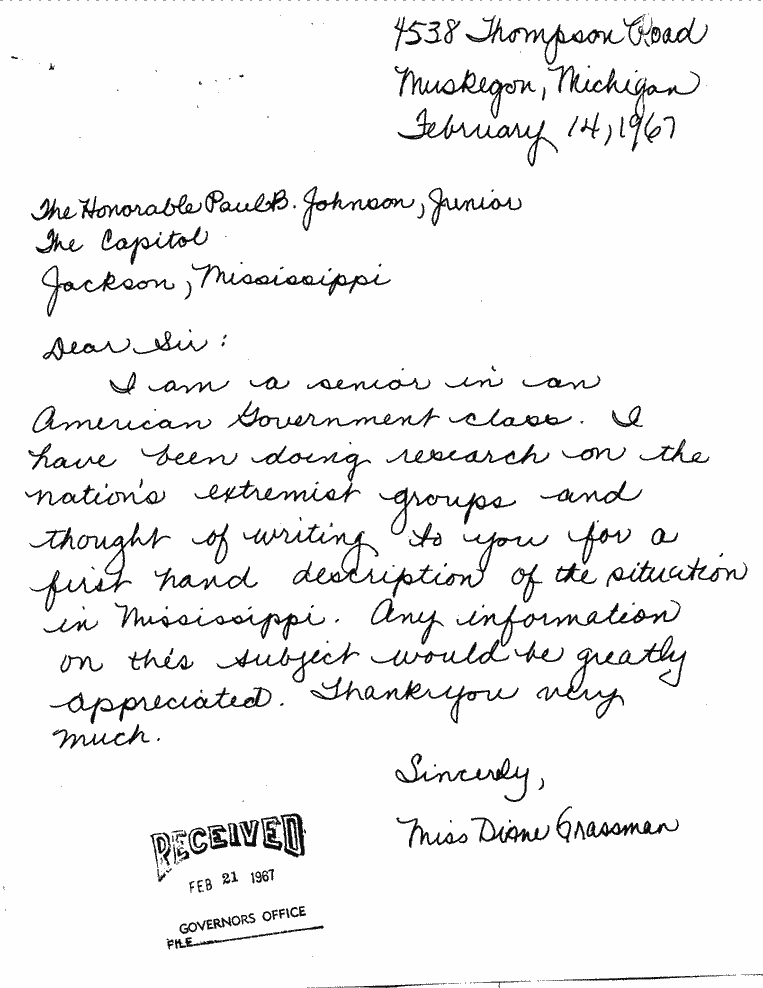 4538 Thompson Road
Muskegon, Michigan
February 14, 1967
The Honorable Paul B. Johnson, Junior
The Capitol
Jackson, Mississippi
Dear Sir:
I am a senior in an
American Government class. I
have been doing research on the
nation's extremist groups and
thought of writing to you for a
first hand description of the situation
in Mississippi. Any information
on this subject would be greatly
appreciated. Thank you very
much.
Sincerely,
Miss Diane Grassman
RECEIVED
FEB 21 1967
GOVERNORS OFFICE
FILE